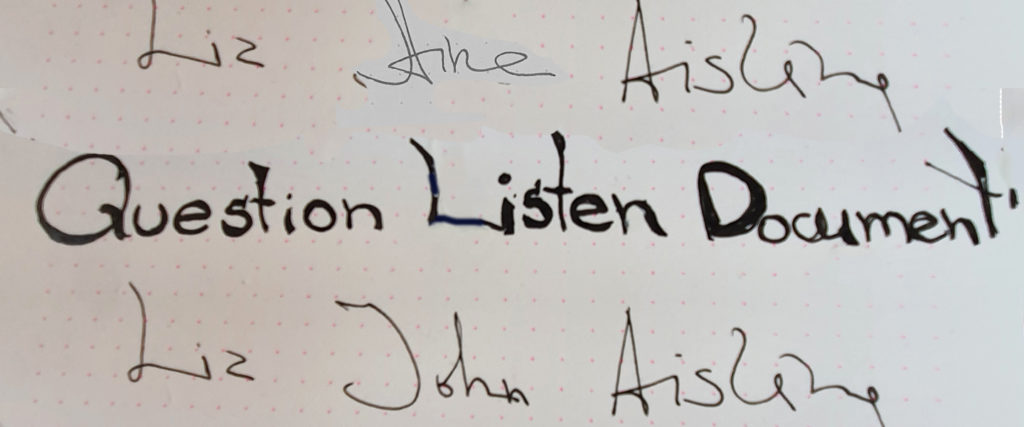 Liz Aine Aisling
Question Listen Document
Liz John Aisling